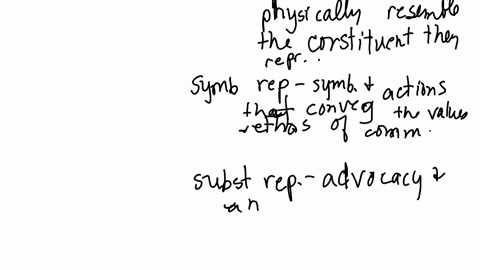 physically resemble
the constituent they
repr..
Symb rep - symb. & actions
that convey the values
ethos of comm.
subst rep. - advocacy &
an